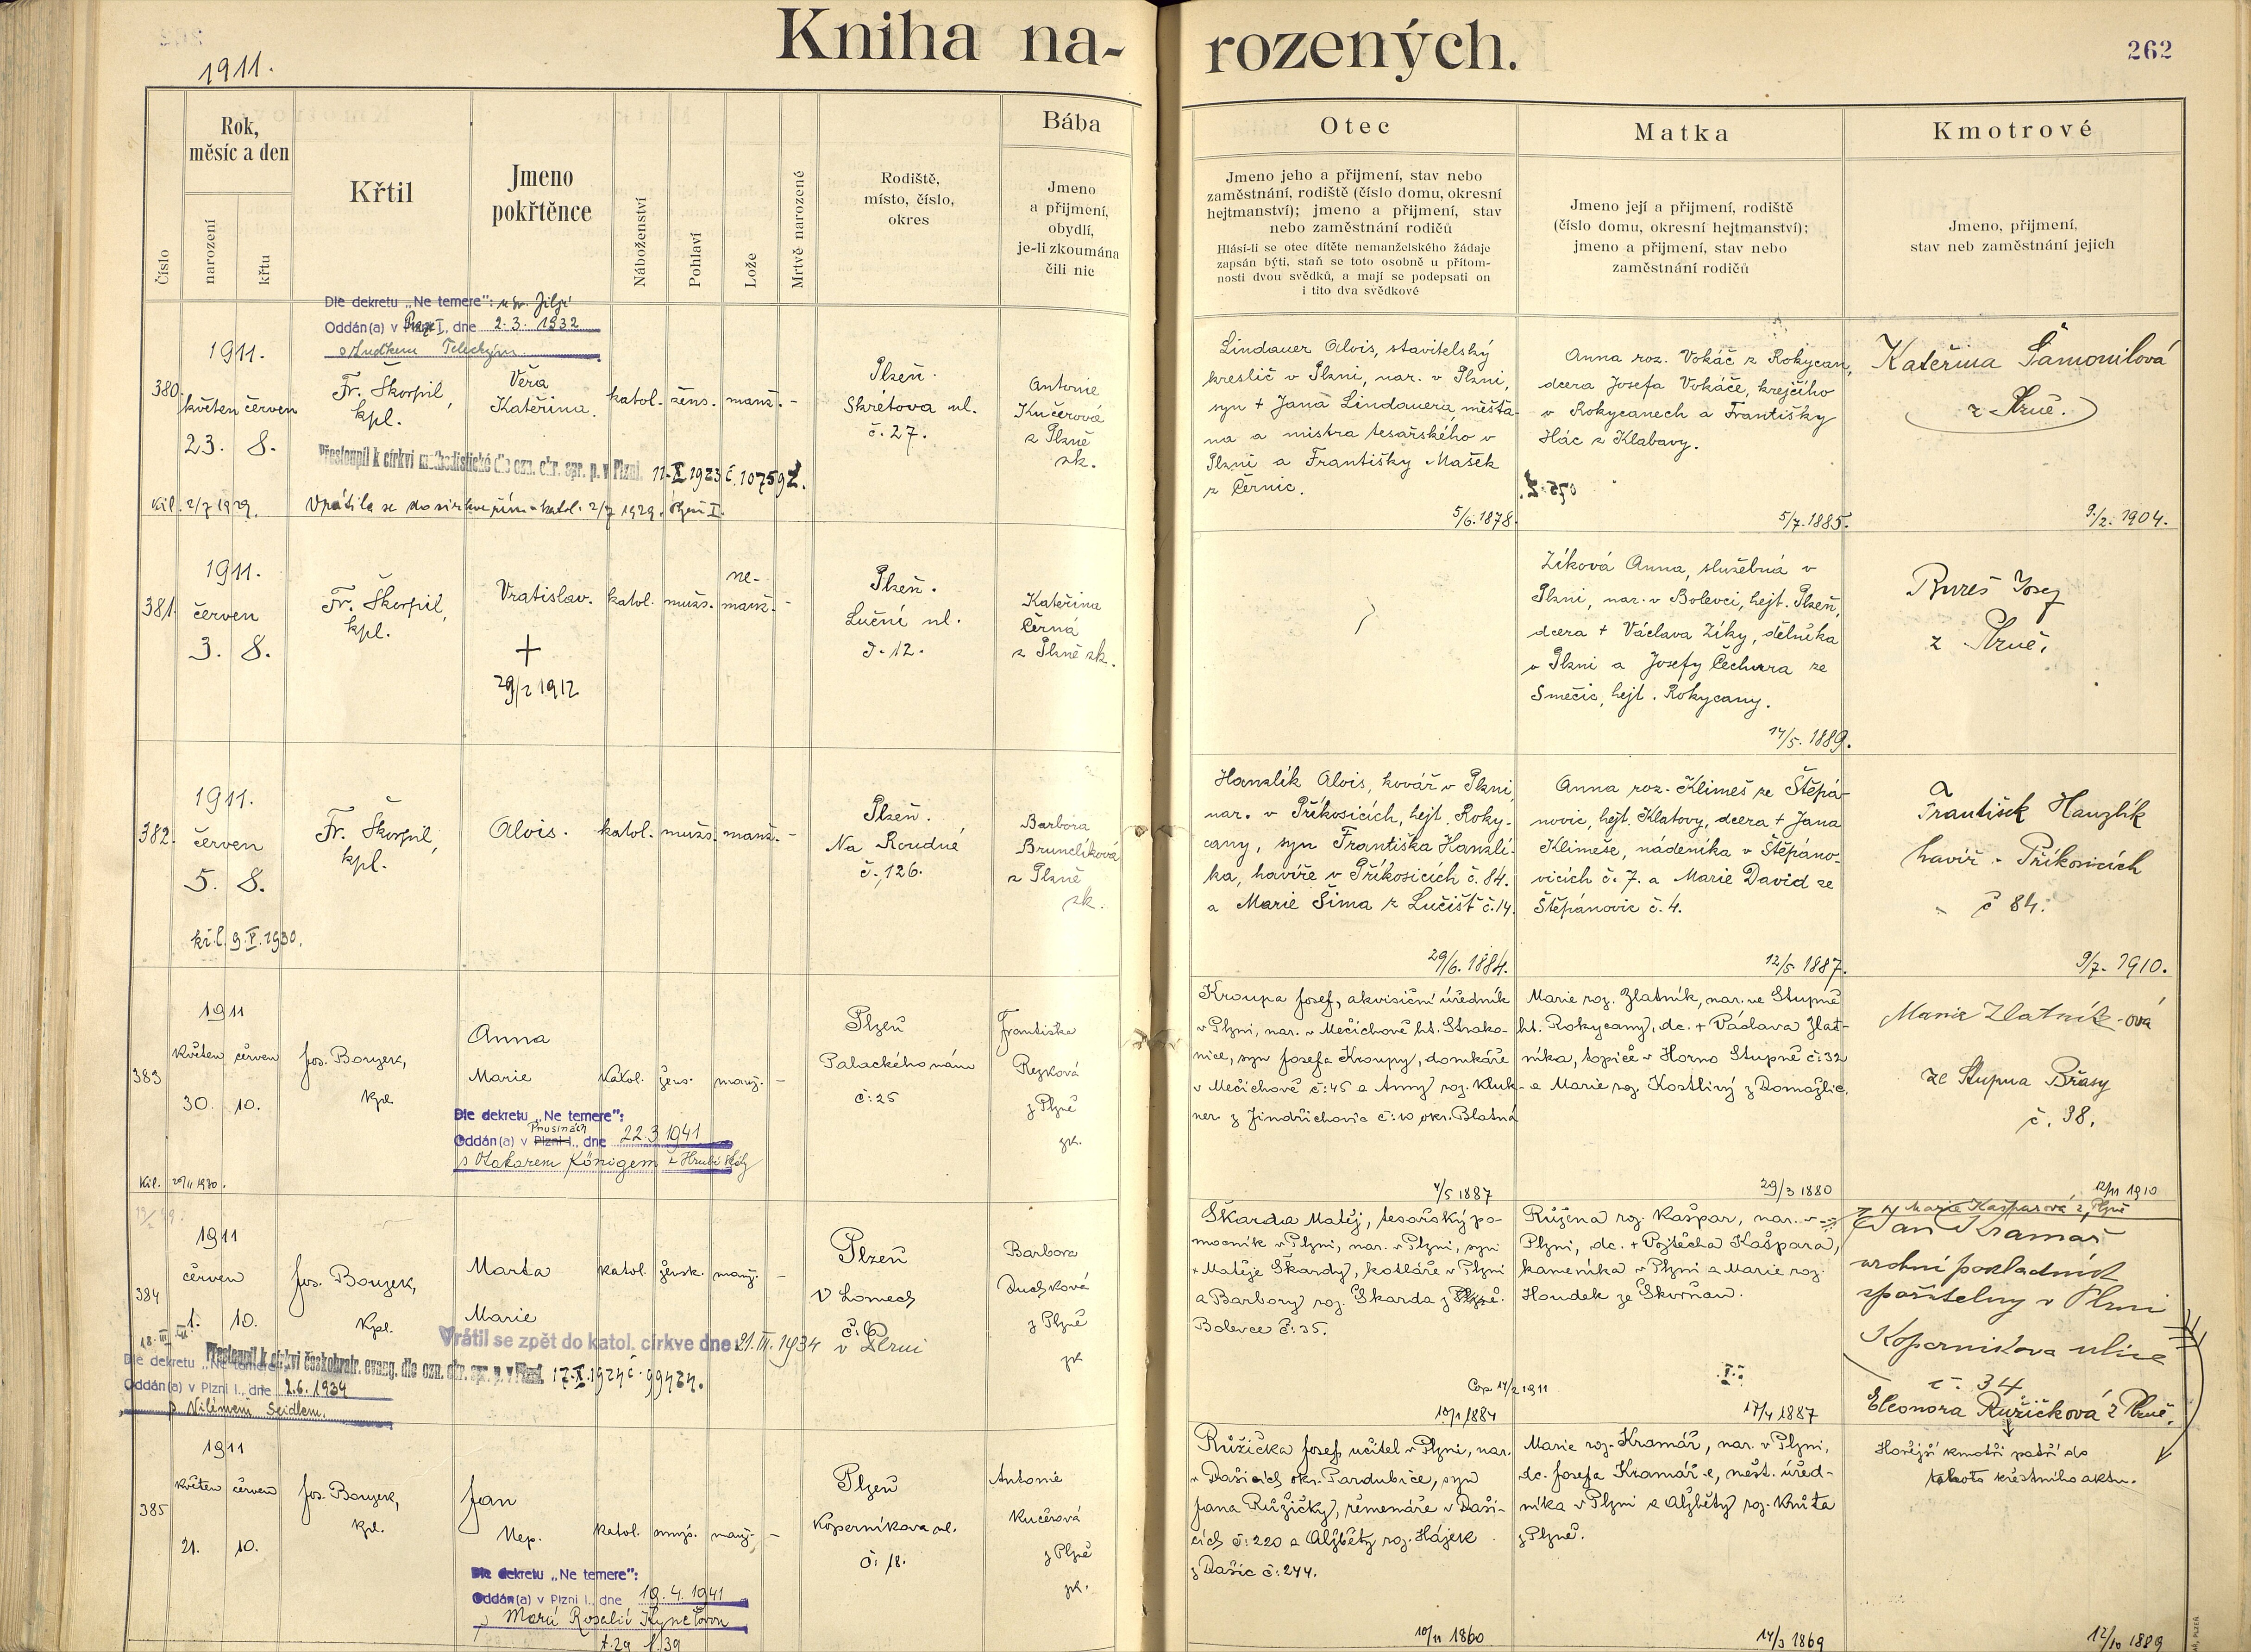 1911.
Kniha na-
rozených.
262
Číslo
Rok,
měsíc a den
narození
křtu
Křtil
Jmeno
pokřtěnce
Náboženství
Pohlaví
Lože
Mrtvě narozené
Rodiště,
místo, číslo,
okres
Bába
Jmeno
a přijmení,
obydlí,
je-li zkoumána
čili nic
Otec
Jmeno jeho a přijmení, stav nebo
zaměstnání, rodiště (číslo domu, okresní
hejtmanství); jmeno a přijmení, stav
nebo zaměstnání rodičů
Hlásí-li se otec dítěte nemanželského žádaje
zapsán býti, staň se toto osobně u přítom-
nosti dvou svědků, a mají se podepsati on
i tito dva svědkové
Matka
Jmeno její a přijmení, rodiště
(číslo domu, okresní hejtmanství);
jmeno a přijmení, stav nebo
zaměstnání rodičů
Kmotrové
Jmeno, přijmení,
stav neb zaměstnání jejich
Dle dekretu „Ne temere": u sv. Jiljí
Oddán(a) v Praze I., dne 2.3. 1932
s Luďkem Teleckým
380
1911.
květen červen
23. 8.
Fr. Škorpil,
kpl.
Věra
Kateřina.
katol. žens. manž. -
Plzeň.
Skrétova ul.
č. 27.
Antonie
Kučerová
z Plzně
zk.
Přestoupil k církvi methodistické dle ozn. okr. spr. p. v Plzni. 11.X.1923 č. 107592.
kř.l. 2/7 1929.
Vrátila se do církve řím.-katol. 2/7 1929. Plzeň I.
Lindauer Alois, stavitelský
kreslič v Plzni, nar. v Plzni,
syn + Jana Lindauera, měšťa-
na a mistra tesařského v
Plzni a Františky Mašek
z Černic.
5/6. 1878.
Anna roz. Vokáč z Rokycan,
dcera Josefa Vokáče, krejčího
v Rokycanech a Františky
Hác z Klabavy.
5/7. 1885.
Kateřina Šamonilová
z Plzně.
9./2. 1904.
381.
1911.
červen
3. 8.
Fr. Škorpil,
kpl.
Vratislav.
+
29/2 1912
katol. mužs. ne-
manž. -
Plzeň.
Luční ul.
č. 12.
Kateřina
Černá
z Plzně zk.
Zíková Anna, služebná v
Plzni, nar. v Bolevci, hejt. Plzeň,
dcera + Václava Zíky, dělníka
v Plzni a Josefy Čechura ze
Smečic, hejt. Rokycany.
14/5. 1889.
Bureš Josef
z Plzně.
382.
1911.
červen
5. 8.
kř.l. 9.V.1930.
Fr. Škorpil,
kpl.
Alois.
katol. mužs. manž. -
Plzeň.
Na Roudné
č. 126.
Barbora
Brunclíková
z Plzně
zk.
Hanzlík Alois, kovář v Plzni,
nar. v Příkosicích, hejt. Roky-
cany, syn Františka Hanzlí-
ka, havíře v Příkosicích č. 84.
a Marie Šima z Lučišť č. 14.
29/6. 1884.
Anna roz. Klimeš ze Štěpá-
novic, hejt. Klatovy, dcera + Jana
Klimeše, nádeníka v Štěpáno-
vicích č. 7. a Marie David ze
Štěpánovic č. 4.
12/5 1887.
František Hanzlík
havíř v Příkosicích
č 84.
9/7. 1910.
383
1911
květen červen
30. 10.
Kř.l. 20/11 1930.
Jos. Bouzek,
kpl
Anna
Marie
katol. žens. manž. -
Dle dekretu „Ne temere":
Prusinách
Oddán(a) v Plzni I., dne 22.3.1941
s Otakarem Königem
Plzeň
Palackého nám
č: 25
Františka
Rezková
z Plzně
zk.
Kroupa Josef, akvisiční úředník
v Plzni, nar. v Mečichově ht. Strako-
nice, syn Josefa Kroupy, domkáře
v Mečichově č: 45 a Anny roz. Kluk-
ner z Jindřichovic č: 10 okr. Blatná
4/5 1887
Marie roz. Zlatník, nar. ve Stupně
ht. Rokycany, dc. + Václava Zlat-
níka, topiče v Horno Stupně č: 32
a Marie roz. Kostlivý z Domažlic.
29/3 1880
Marie Zlatník-ová
ze Stupna Břasy
č. 38.
12/11 1910
384
1911
červen
1. 10.
Jos. Bouzek,
kpl.
Marta
Marie
katol. žensk. manž. -
Plzeň
V Lomech
č: 6
v Plzni
Barbora
Duchková
z Plzně
zk
Vrátil se zpět do katol. církve dne: 21.III.1934
Přestoupil k církvi českobratr. evang. dle ozn. okr. spr. p. v Plzni. 17.X.1924 č. 99424.
Dle dekretu „Ne temere"
Oddán(a) v Plzni I., dne 2.6. 1934
s Vilémem Seidlem.
Škarda Matěj, tesařský po-
mocník v Plzni, nar. v Plzni, syn
+ Matěje Škardy, kotláře v Plzni
a Barbory roz. Škarda z Plzně.
Bolevce č: 35.
Cop. 14/2 1911
10/1 1884
Růžena roz. Kašpar, nar. v
Plzni, dc. + Vojtěcha Kašpara,
kameníka v Plzni a Marie roz.
Houdek ze Skvrňan.
17/4 1887
Marie Kašparová z Plzně
Jan Kramář
vrchní pokladník
spořitelny v Plzni
Koperníkova ulice
č. 34
Eleonora Růžičková z Plzně.
385
1911
květen červen
21. 10.
Jos. Bouzek,
kpl.
Jan
Nep.
katol. mužs. manž. -
Dle dekretu „Ne temere":
Oddán(a) v Plzni I., dne 19.4.1941
s Marií Rosalií
t. 29 f. 39
Plzeň
Koperníkova ul.
č: 18.
Antonie
Kučerová
z Plzně
zk.
Růžička Josef, učitel v Plzni, nar.
v Dašicích okr. Pardubice, syn
Jana Růžičky, řemenáře v Daši-
cích č: 220 a Alžběty roz. Hájek
z Dašic č: 244.
10/11 1860
Marie roz. Kramář, nar. v Plzni,
dc. Josefa Kramáře, měst. úřed-
níka v Plzni a Alžběty roz. Knita
z Plzně.
14/3 1869
Hořejší kmotři patří do
tohoto křestního aktu.
12/10 1889